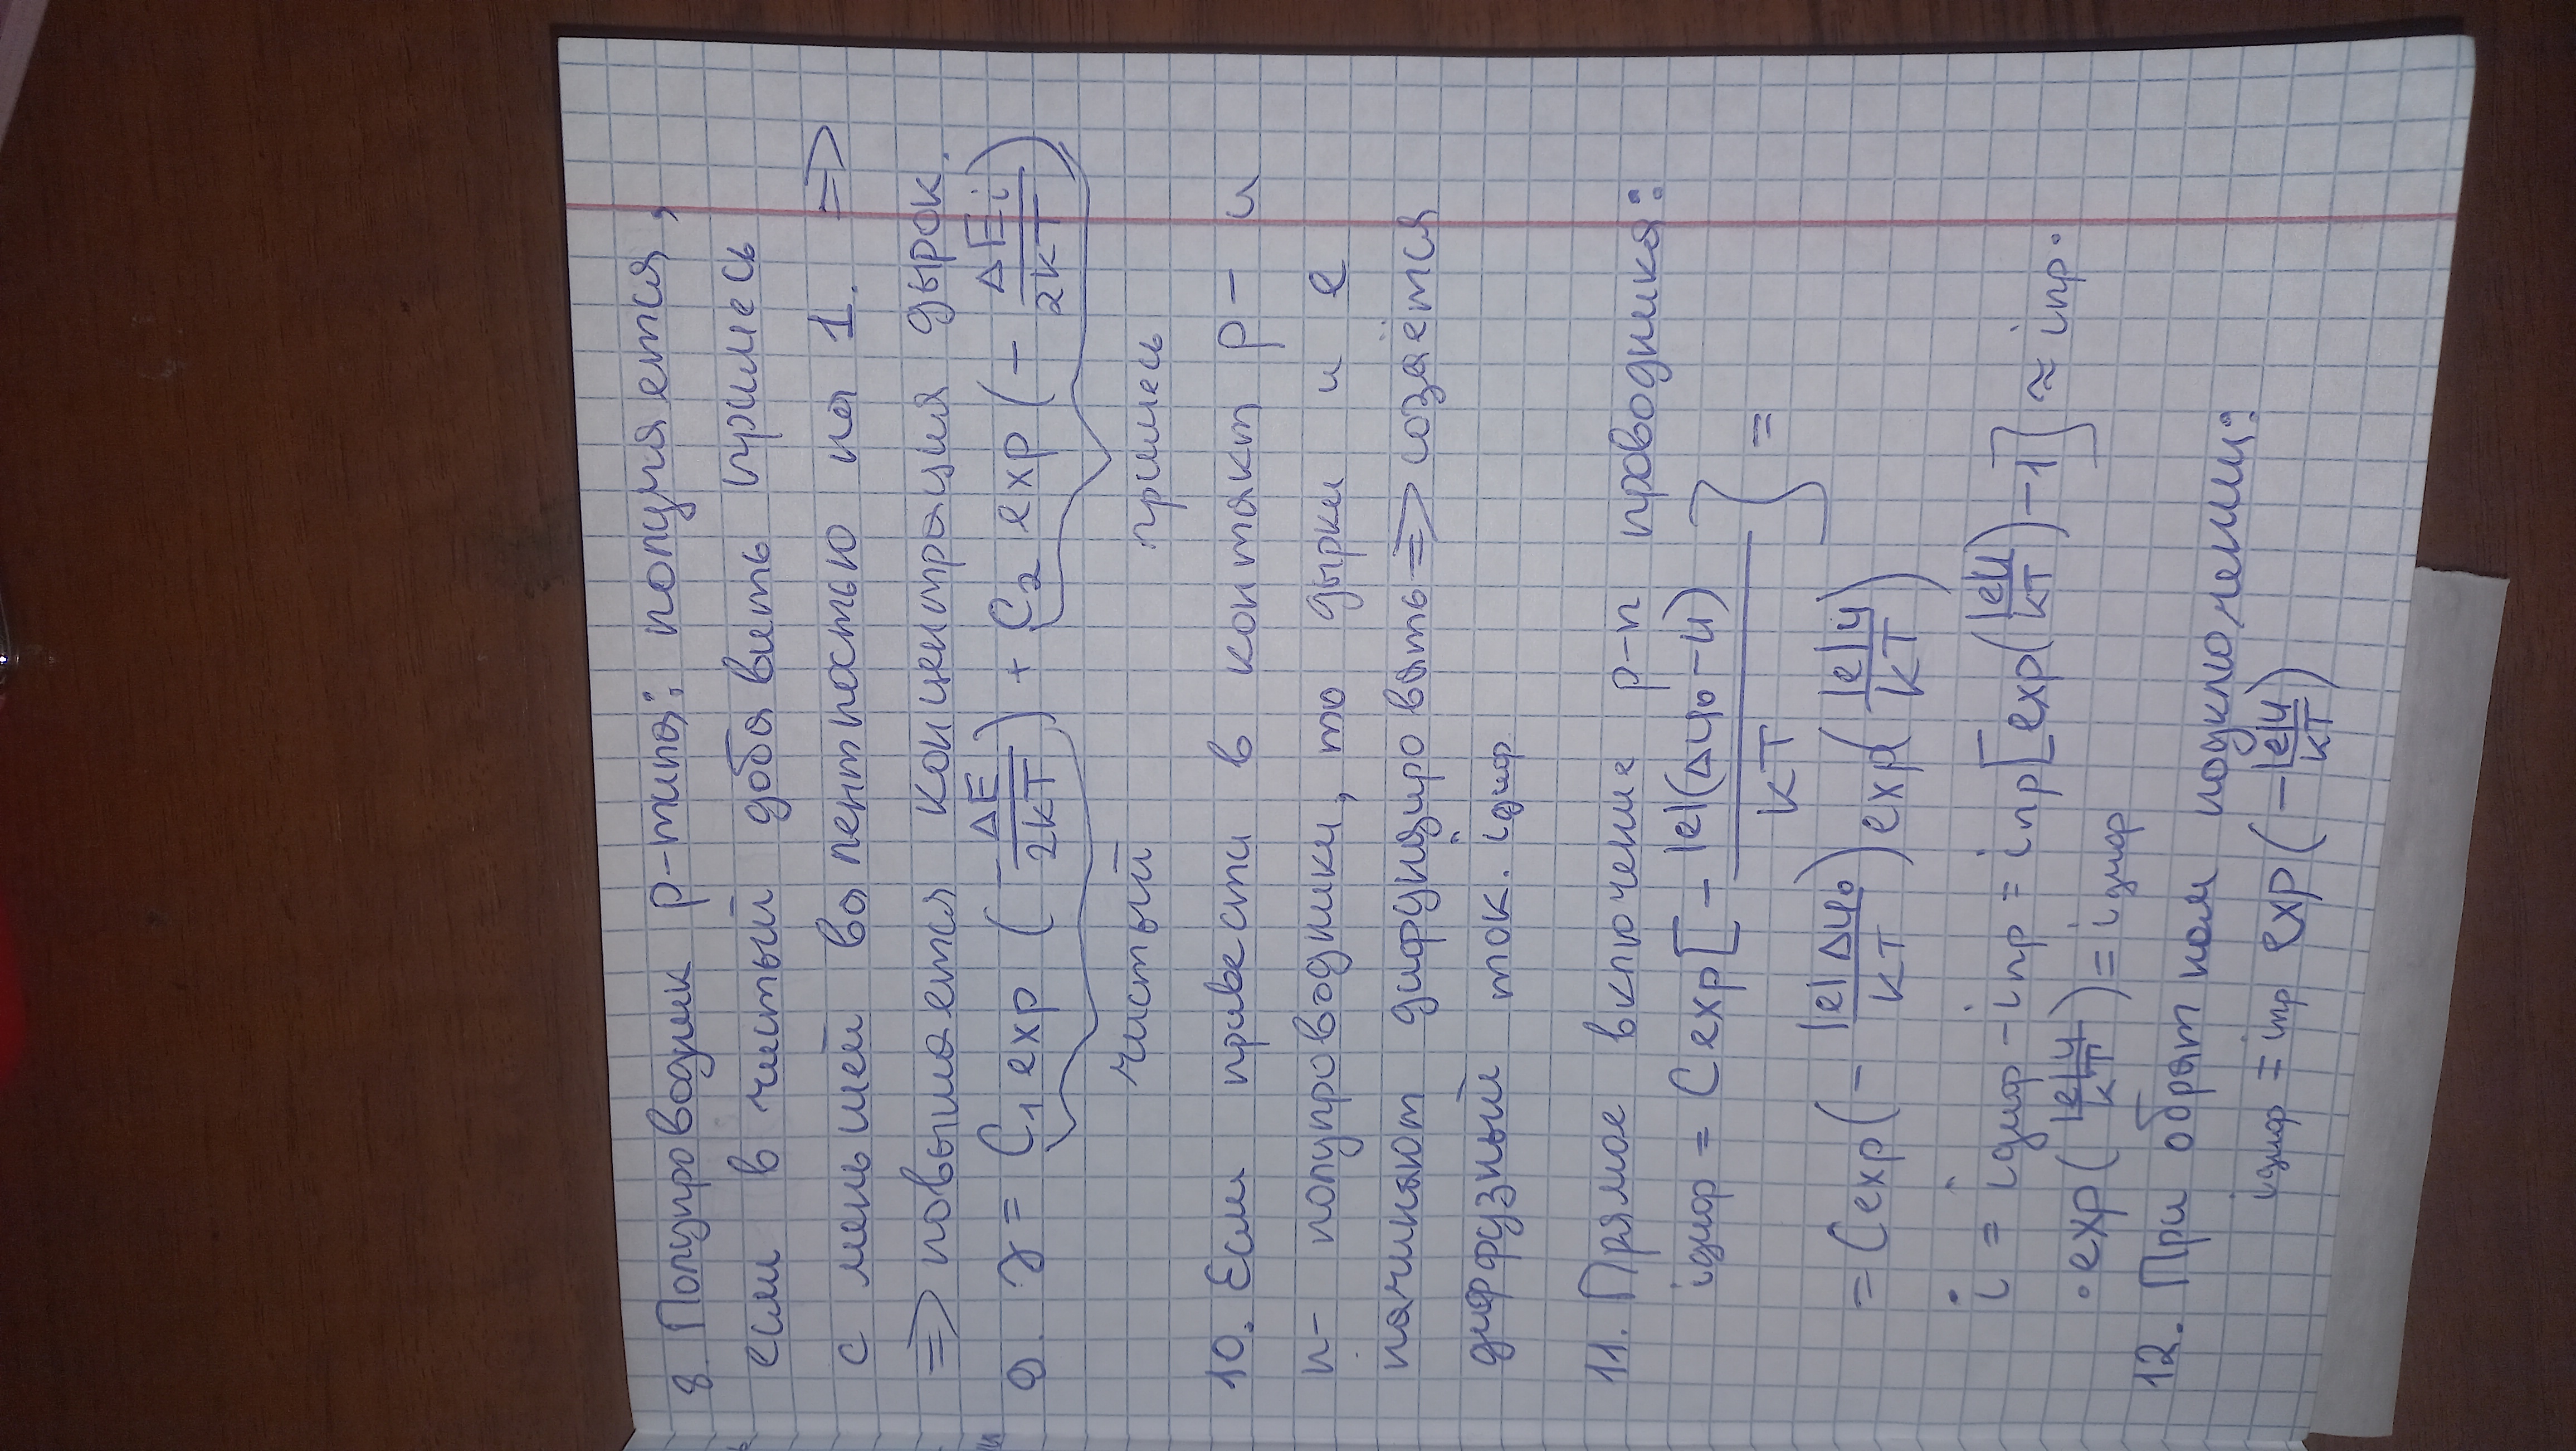 8. Полупроводник p-типа: получается,
если в чистый добавить примесь
с меньшей валентностью на 1. =>
=> повышается концентрация дырок.
9. γ = C₁ exp (-ΔE/2kT) + C₂ exp (-ΔEi/2kT)
чистый примесь
10. Если привести в контакт p- и
n- полупроводники, то дырки и e
начинают дифундировать => созаётся
диффузный ток. iдиф
11. Прямое включение p-n проводника:
iдиф = C exp [- |e|(Δφ₀ - U)/kT] =
= C exp (- |e|Δφ₀/kT) exp (|e|U/kT)
i = iдиф - iпр = iпр [exp (|e|U/kT) - 1] ≈ iпр ·
· exp (|e|U/kT) = iдиф
12. При обратном подключении:
iдиф = iпр exp (- |e|U/kT)